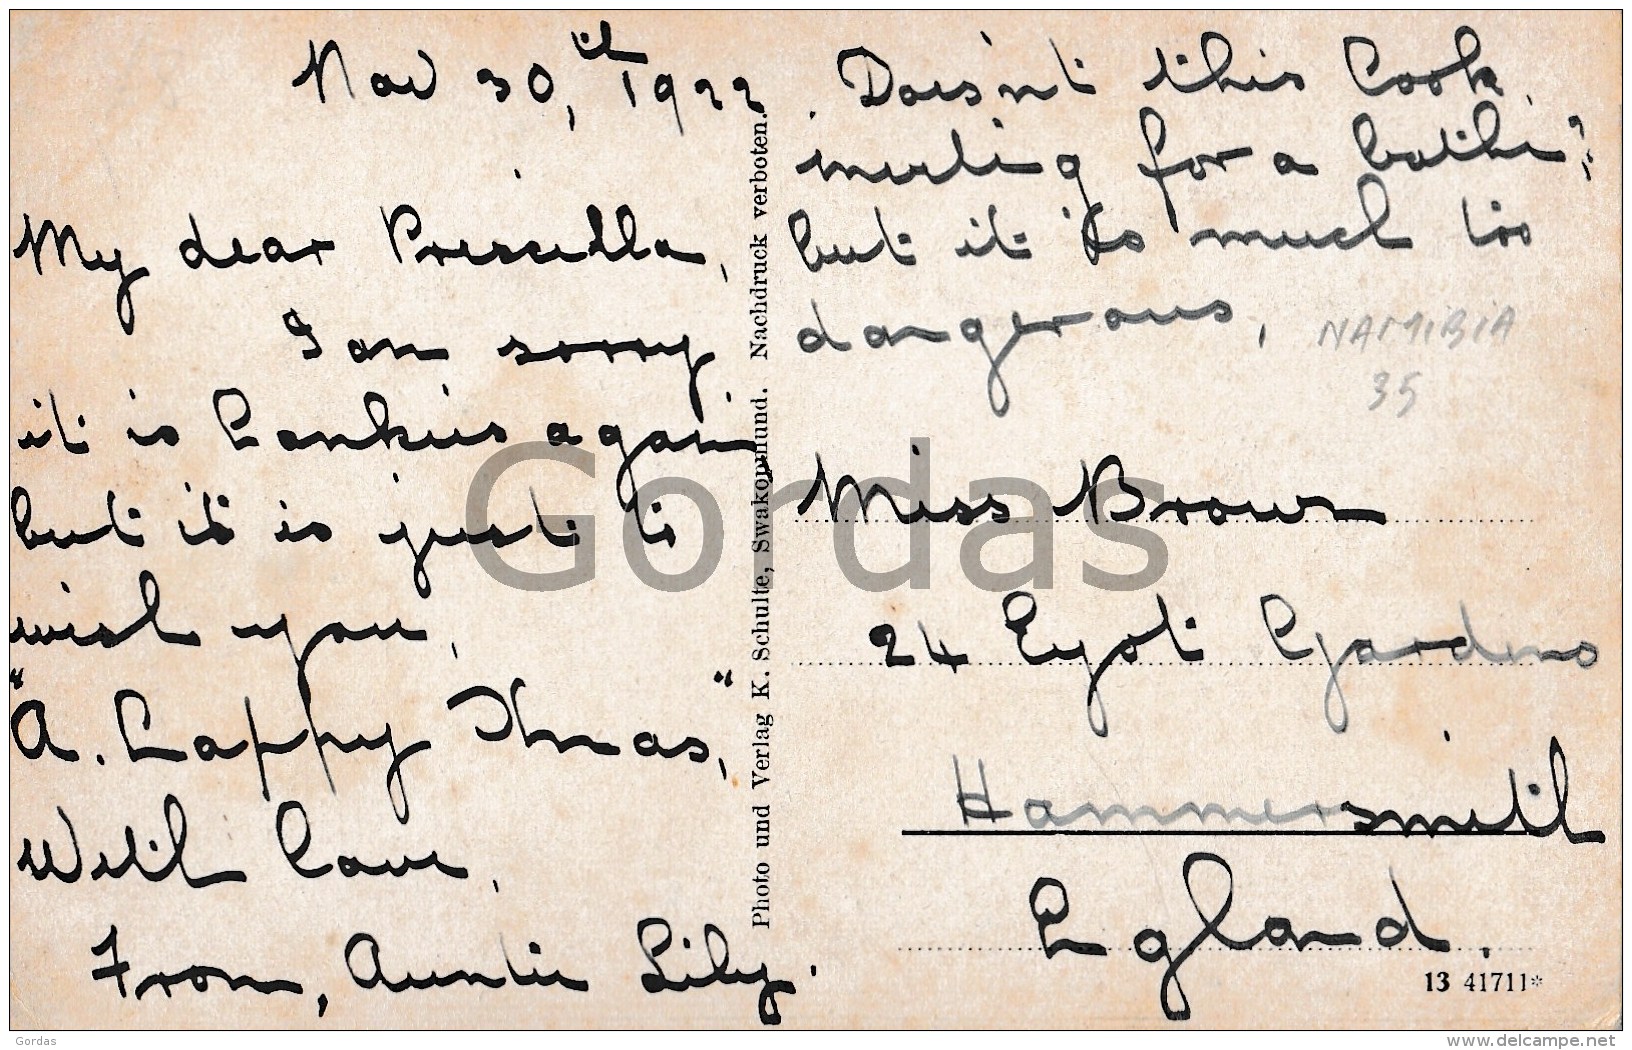 Nov 30, th 1922
My dear Priscilla,
I am sorry
it is again
but it is just to
wish you,
"A. Happy Xmas,"
With Love,
From, Auntie Lily.
Doesn't this Look
for a bathe?
but it is much too
dangerous,
NAMIBIA
35
Miss Brown
24 Eyot Gardens
Hammersmith
England.
13 41711*
Photo und Verlag K. Schulte, Swakopmund. Nachdruck verboten.
Gordas
Gordas
www.delcampe.net